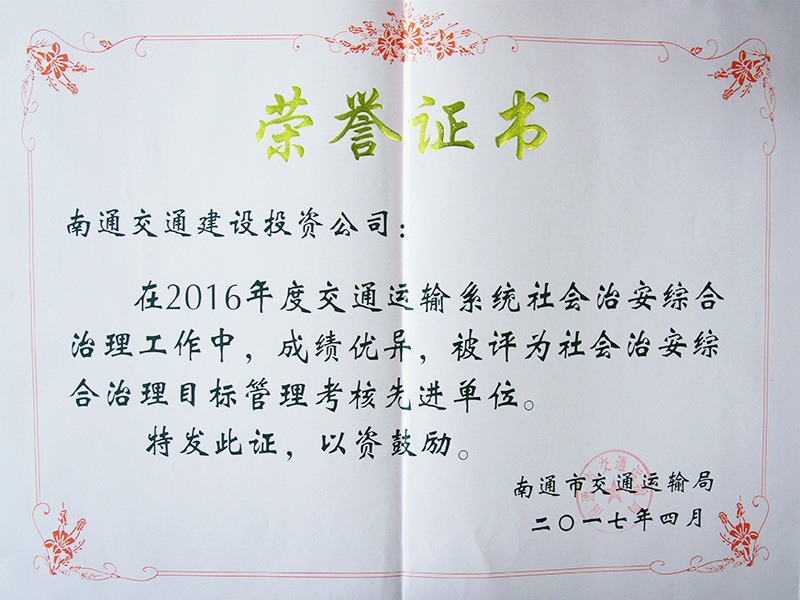 荣誉证书
南通交通建设投资公司：
在2016年度交通运输系统社会治安综合
治理工作中，成绩优异，被评为社会治安综
合治理目标管理考核先进单位。
特发此证，以资鼓励。
南通市交通运输局
二〇一七年四月